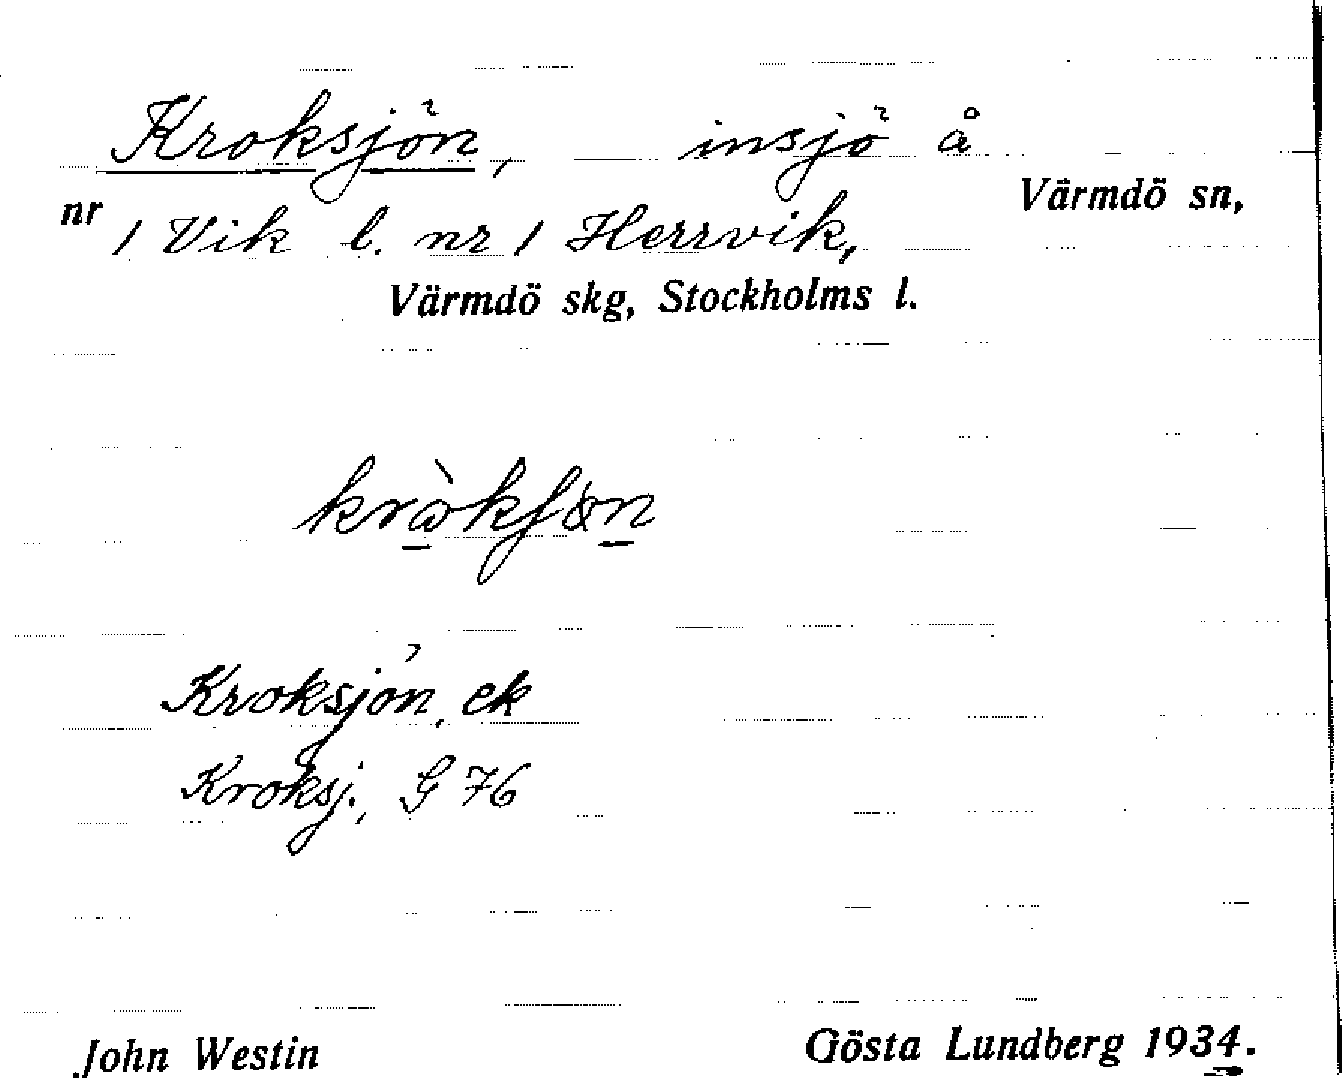 Kroksjön, insjö å
Värmdö sn,
nr 1 Vik l. nr 1 Herrvik,
Värmdö skg, Stockholms l.
Kroksjön, ek
Kroksj., G 76
John Westin Gösta Lundberg 1934.